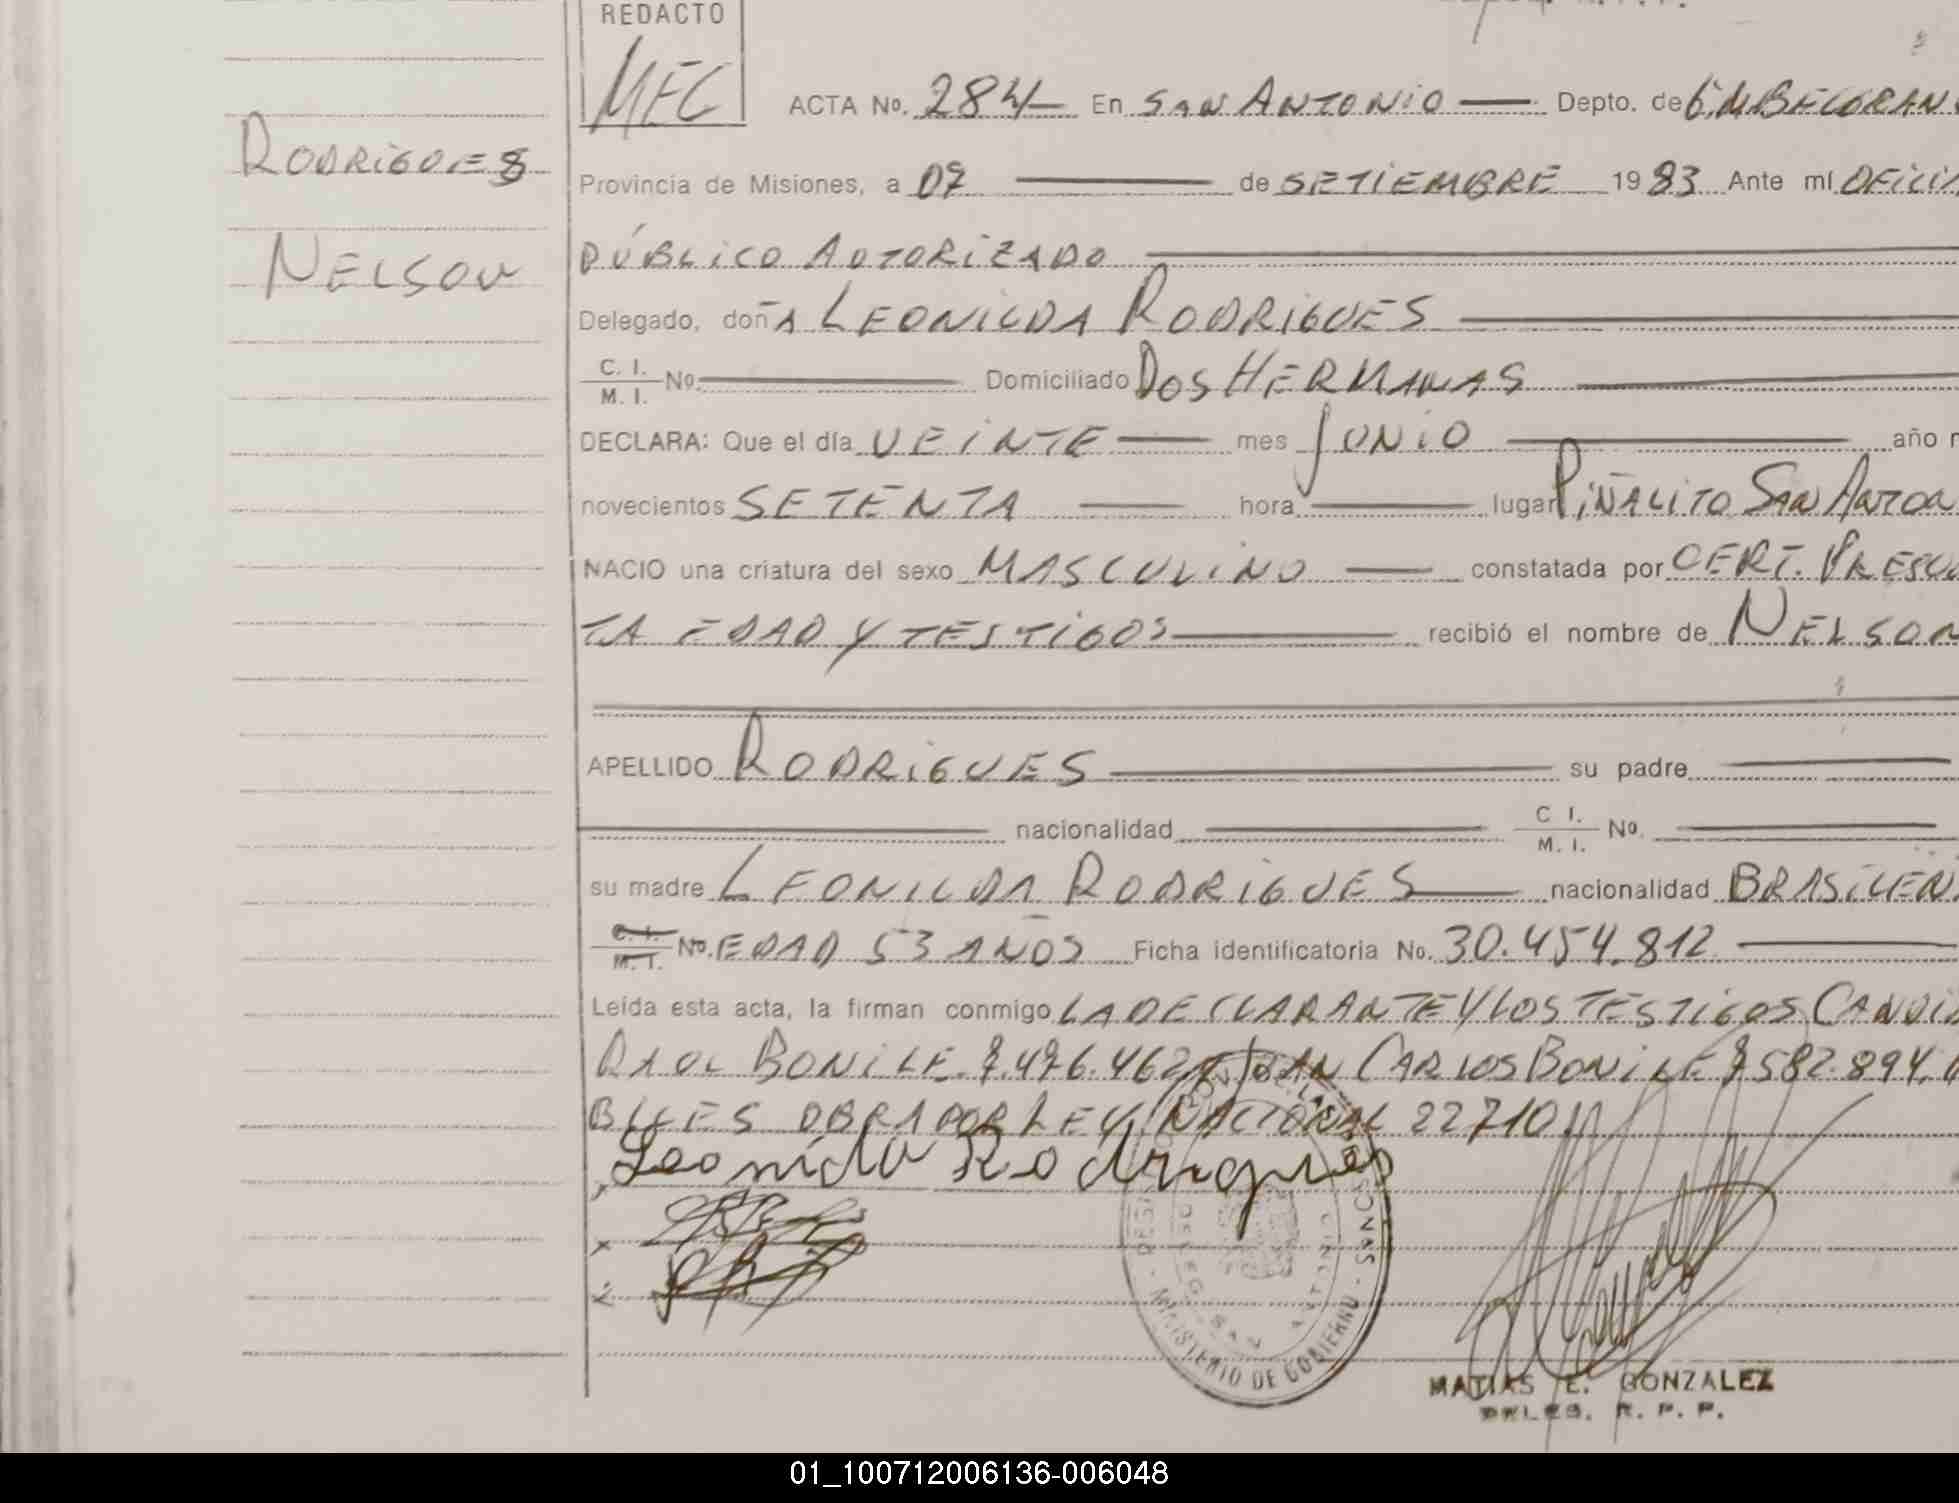 REDACTO
MEC
ACTA No. 284 En SAN ANTONIO Depto. de G. M BELGRAN
RODRIGUES
Provincia de Misiones, a 07 de SETIEMBRE 1983 Ante mI OFICIA
NELSON
PÚBLICO AUTORIZADO
Delegado, doñA LEONILDA RODRIGUES
C. I.
M. I. No. Domiciliado DOS HERMANAS
DECLARA: Que el día VEINTE mes JUNIO año
novecientos SETENTA hora lugar PIÑALITO SAN ANTON
NACIO una criatura del sexo MASCULINO constatada por CERT. PRESU
TA EDAD Y TESTIGOS recibió el nombre de NELSON
APELLIDO RODRIGUES su padre
nacionalidad C I.
M. I. No.
su madre LEONILDA RODRIGUES nacionalidad BRASILEN
C. I.
M. I. No. EDAD 53 AÑOS Ficha identificatoria No. 30.454.812
Leída esta acta, la firman conmigo LA DECLARANTE Y LOS TESTIGOS CANDI
RAUL BONILE 7.476.462 JUAN CARLOS BONILE 7582.894.
BLES OBRADOR LEY NACIONAL 22710
Leonida Rodrigues
MINISTERIO DE GOBIERNO
SAN ANTONIO
MATIAS E. GONZALEZ
DELEG. R. P. P.
01_100712006136-006048